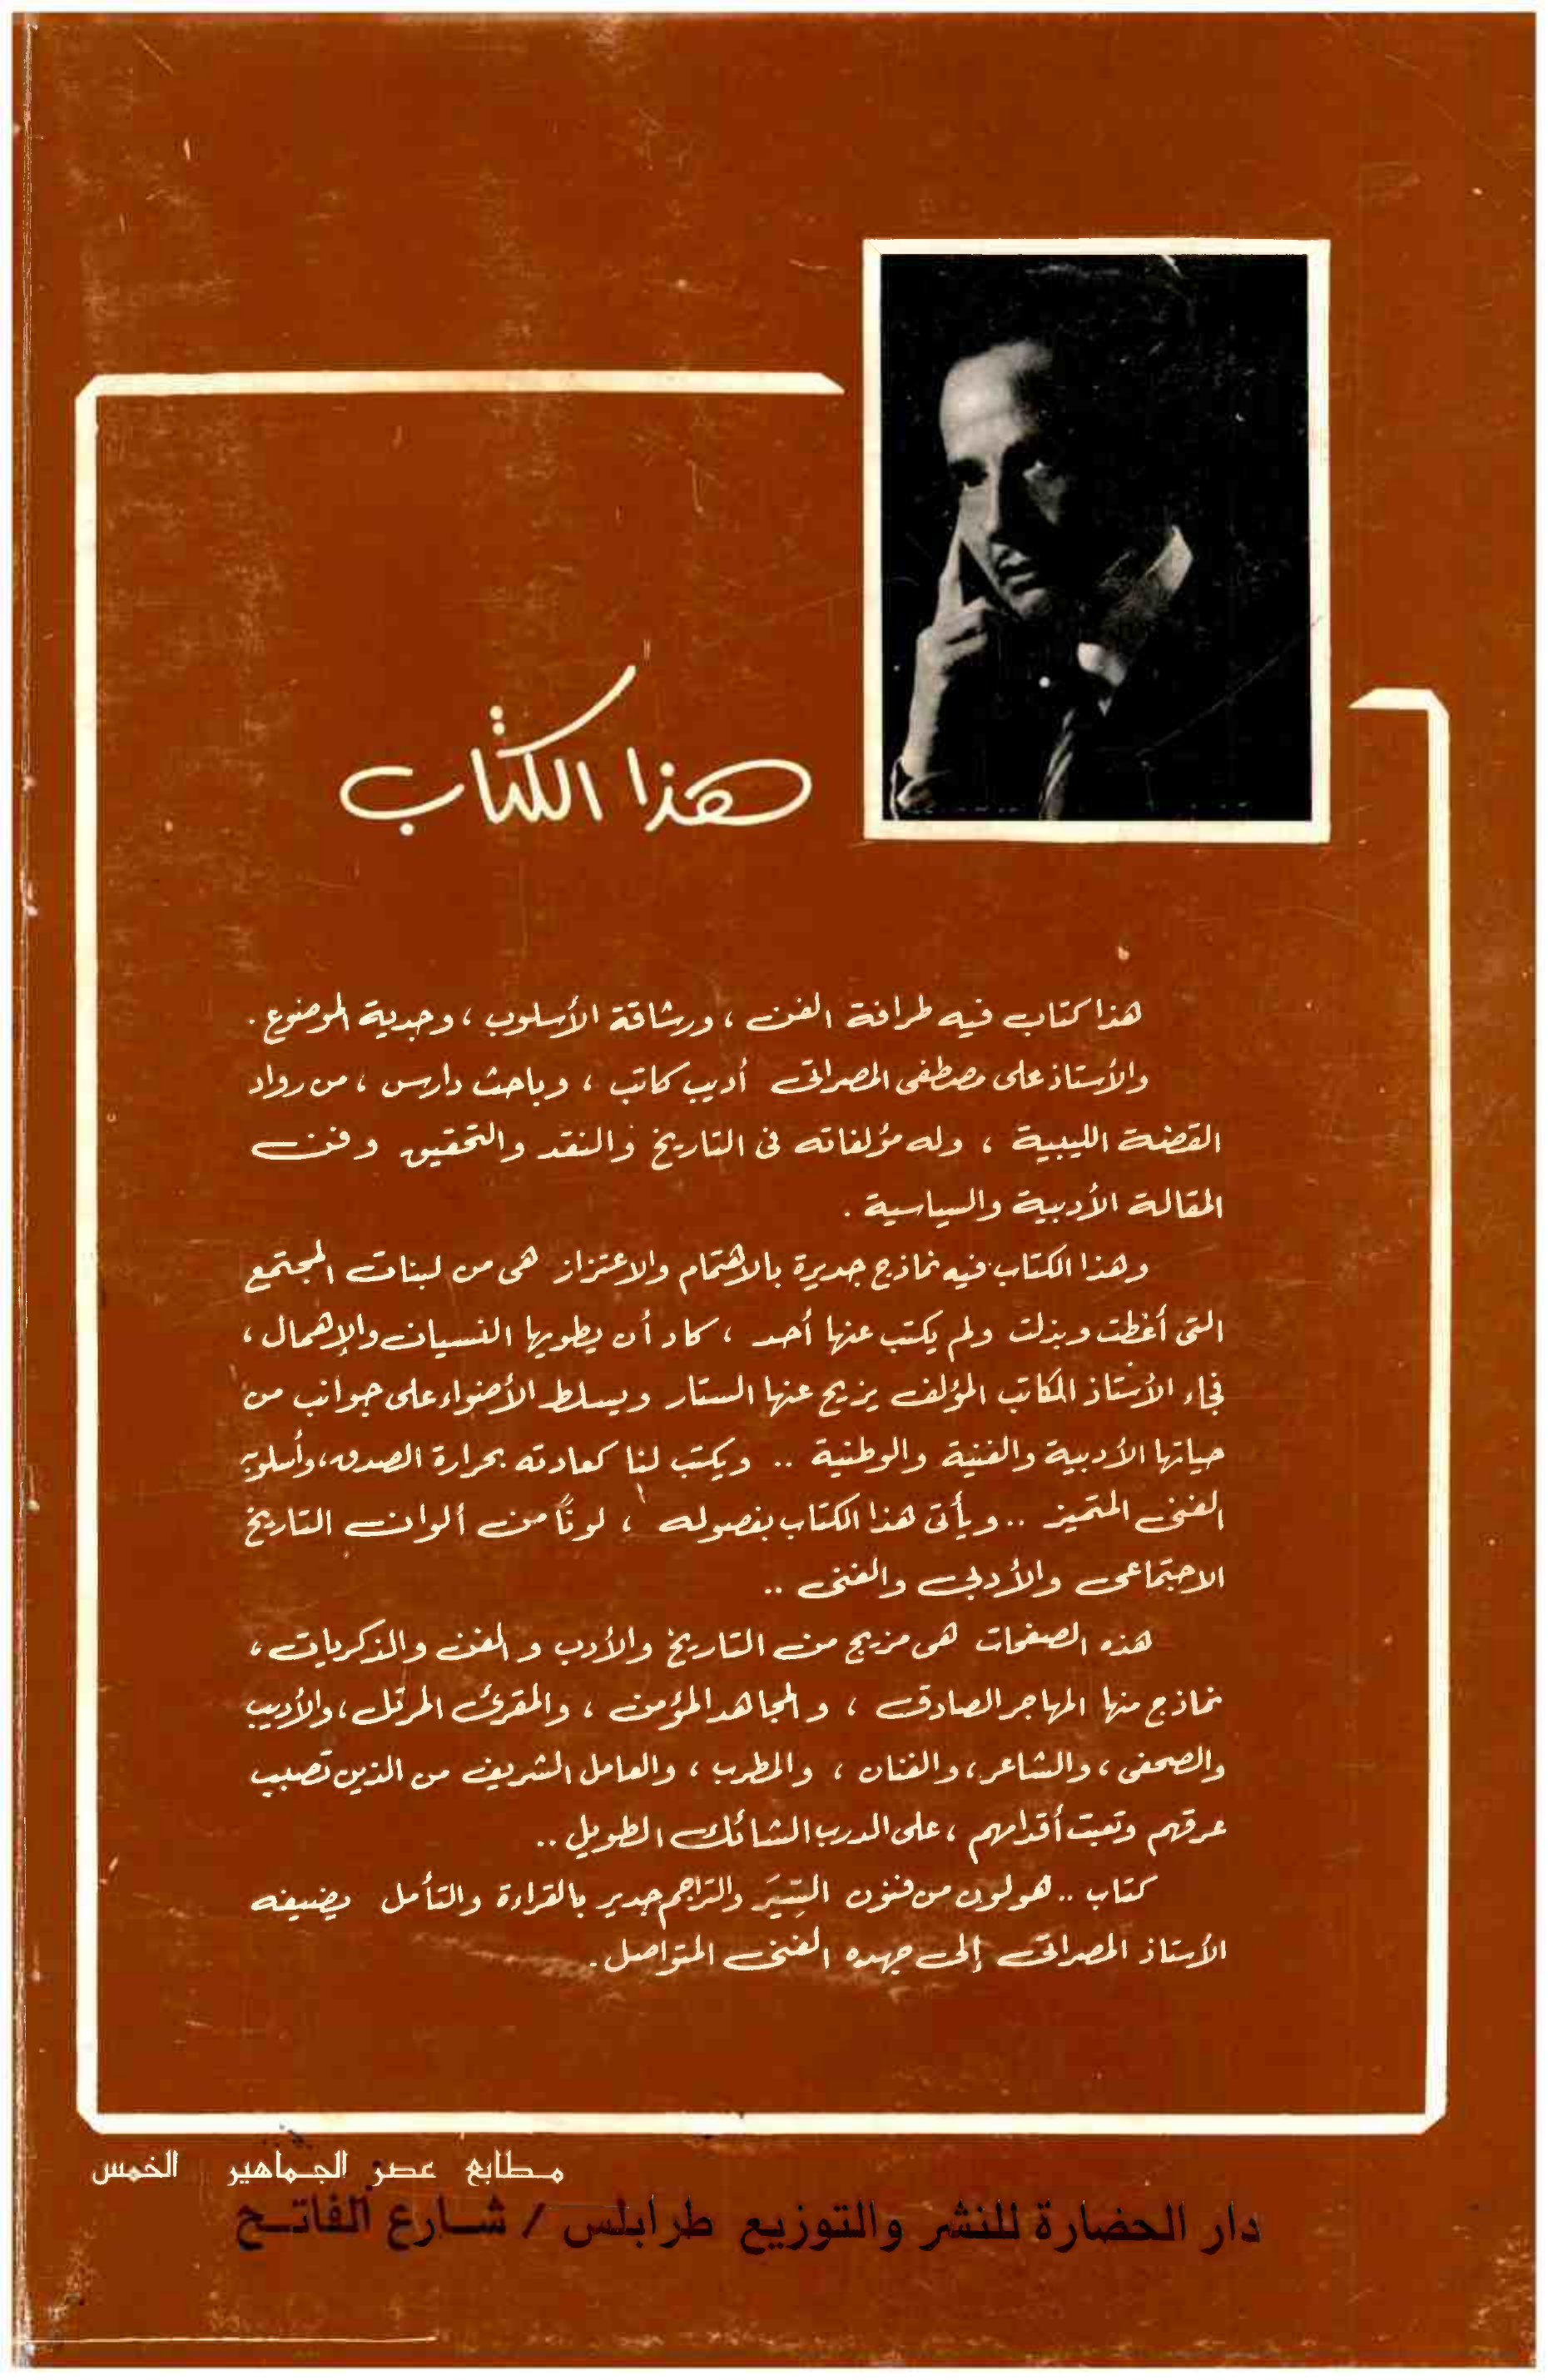 هذا الكتاب
هذا كتاب فيه طرافة الفن ، ورشاقة الأسلوب ، وجدية الموضوع .
والأستاذ على مصطفى المصراتى أديب كاتب ، وباحث دارس ، من رواد
القصة الليبية ، وله مؤلفاته فى التاريخ والنقد والتحقيق وفن
المقالة الأدبية والسياسية .
وهذا الكتاب فيه نماذج جديرة بالاهتمام والاعتزاز هى من لبنات المجتمع
التى أعطت وبذلت ولم يكتب عنها أحد ، كاد أن يطويها النسيان والإهمال ،
فجاء الأستاذ الكاتب المؤلف يزيح عنها الستار ويسلط الأضواء على جوانب من
حياتها الأدبية والفنية والوطنية .. ويكتب لنا كعادته بحرارة الصدق ، وأسلوبه
الفنى المتميز .. ويأتى هذا الكتاب بفصوله ، لونًا من ألوان التاريخ
الاجتماعى والأدبى والفنى ..
هذه الصفحات هى مزيج من التاريخ والأدب والفن والذكريات ،
نماذج منها المهاجر الصادق ، والمجاهد المؤمن ، والمقرئ المرتل ، والأديب
والصحفى ، والشاعر ، والفنان ، والمطرب ، والعامل الشريف من الذين تصبب
عرقهم وتعبت أقدامهم ، على الدرب الشائك الطويل ..
كتاب .. هو لون من فنون السِّيَر والتراجم جدير بالقراءة والتأمل يضيفه
الأستاذ المصراتى إلى جهده الفنى المتواصل .
مطابع عصر الجماهير الخمس
دار الحضارة للنشر والتوزيع طرابلس / شارع الفاتح